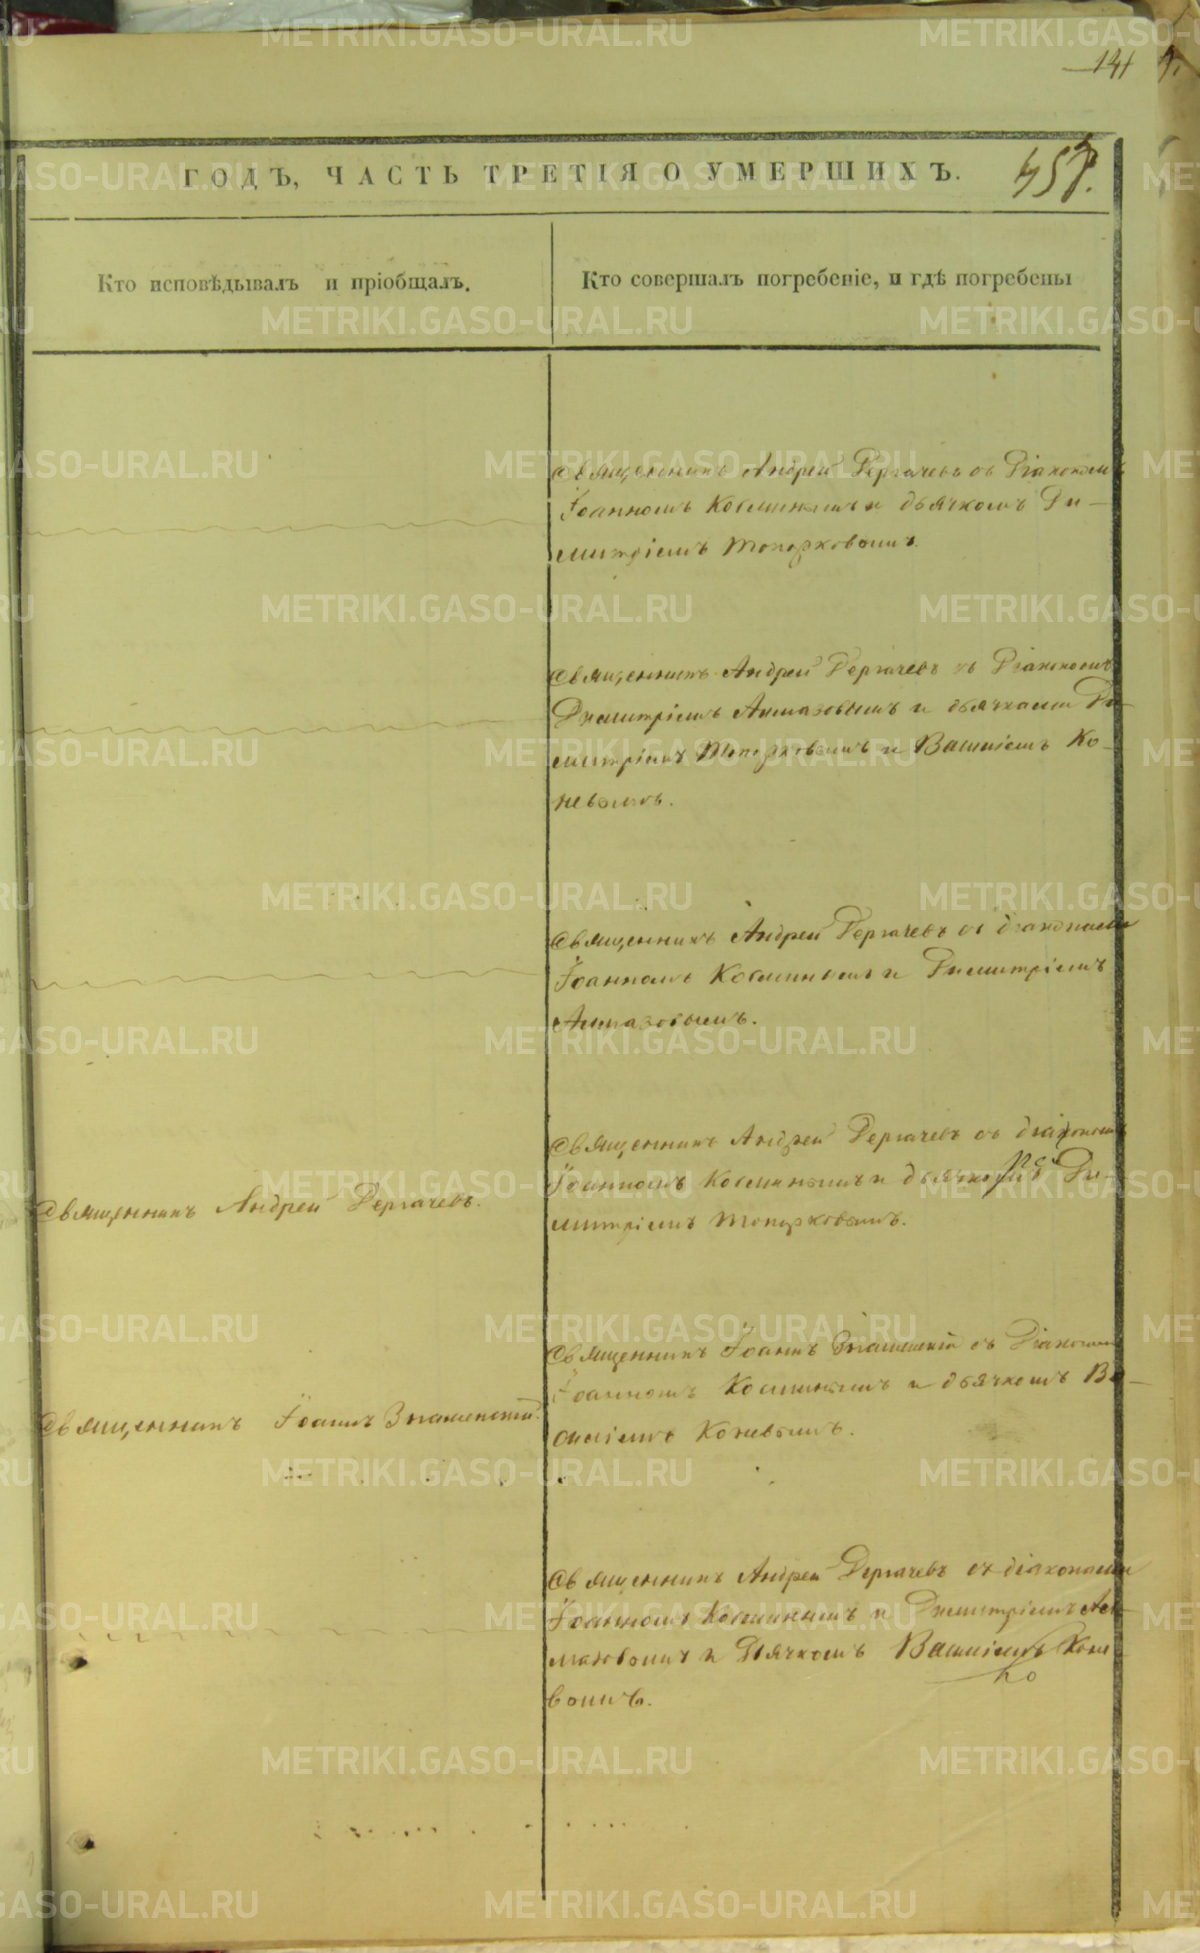 141
ГОДЪ, ЧАСТЬ ТРЕТІЯ О УМЕРШИХЪ.
457.
Кто исповѣдывалъ и пріобщалъ.
Кто совершалъ погребеніе, и гдѣ погребены
Священникъ Андрей Дергачевъ съ Діакономъ
Іоанномъ Косминымъ и дьячкомъ Ди-
митріемъ Топорковымъ.
Священникъ Андрей Дергачевъ съ Діакономъ
Димитріемъ Алмазовымъ и дьячками Ди-
митріемъ Топорковымъ и Василіемъ Ко-
невымъ.
Священникъ Андрей Дергачевъ съ діаконами
Іоанномъ Косминымъ и Димитріемъ
Алмазовымъ.
Священникъ Андрей Дергачевъ.
Священникъ Андрей Дергачевъ съ діакономъ
Іоанномъ Косминымъ и дьячкомъ Ди-
митріемъ Топорковымъ.
Священникъ Іоаннъ Знаменскій.
Священникъ Іоаннъ Знаменскій съ Діакономъ
Іоанномъ Косминымъ и дьячкомъ Ва-
силіемъ Коневымъ.
Священникъ Андрей Дергачевъ съ діаконами
Іоанномъ Косминымъ и Димитріемъ Ал-
мазовымъ и Дьячкомъ Василіемъ Коне
вымъ.
METRIKI.GASO-URAL.RU